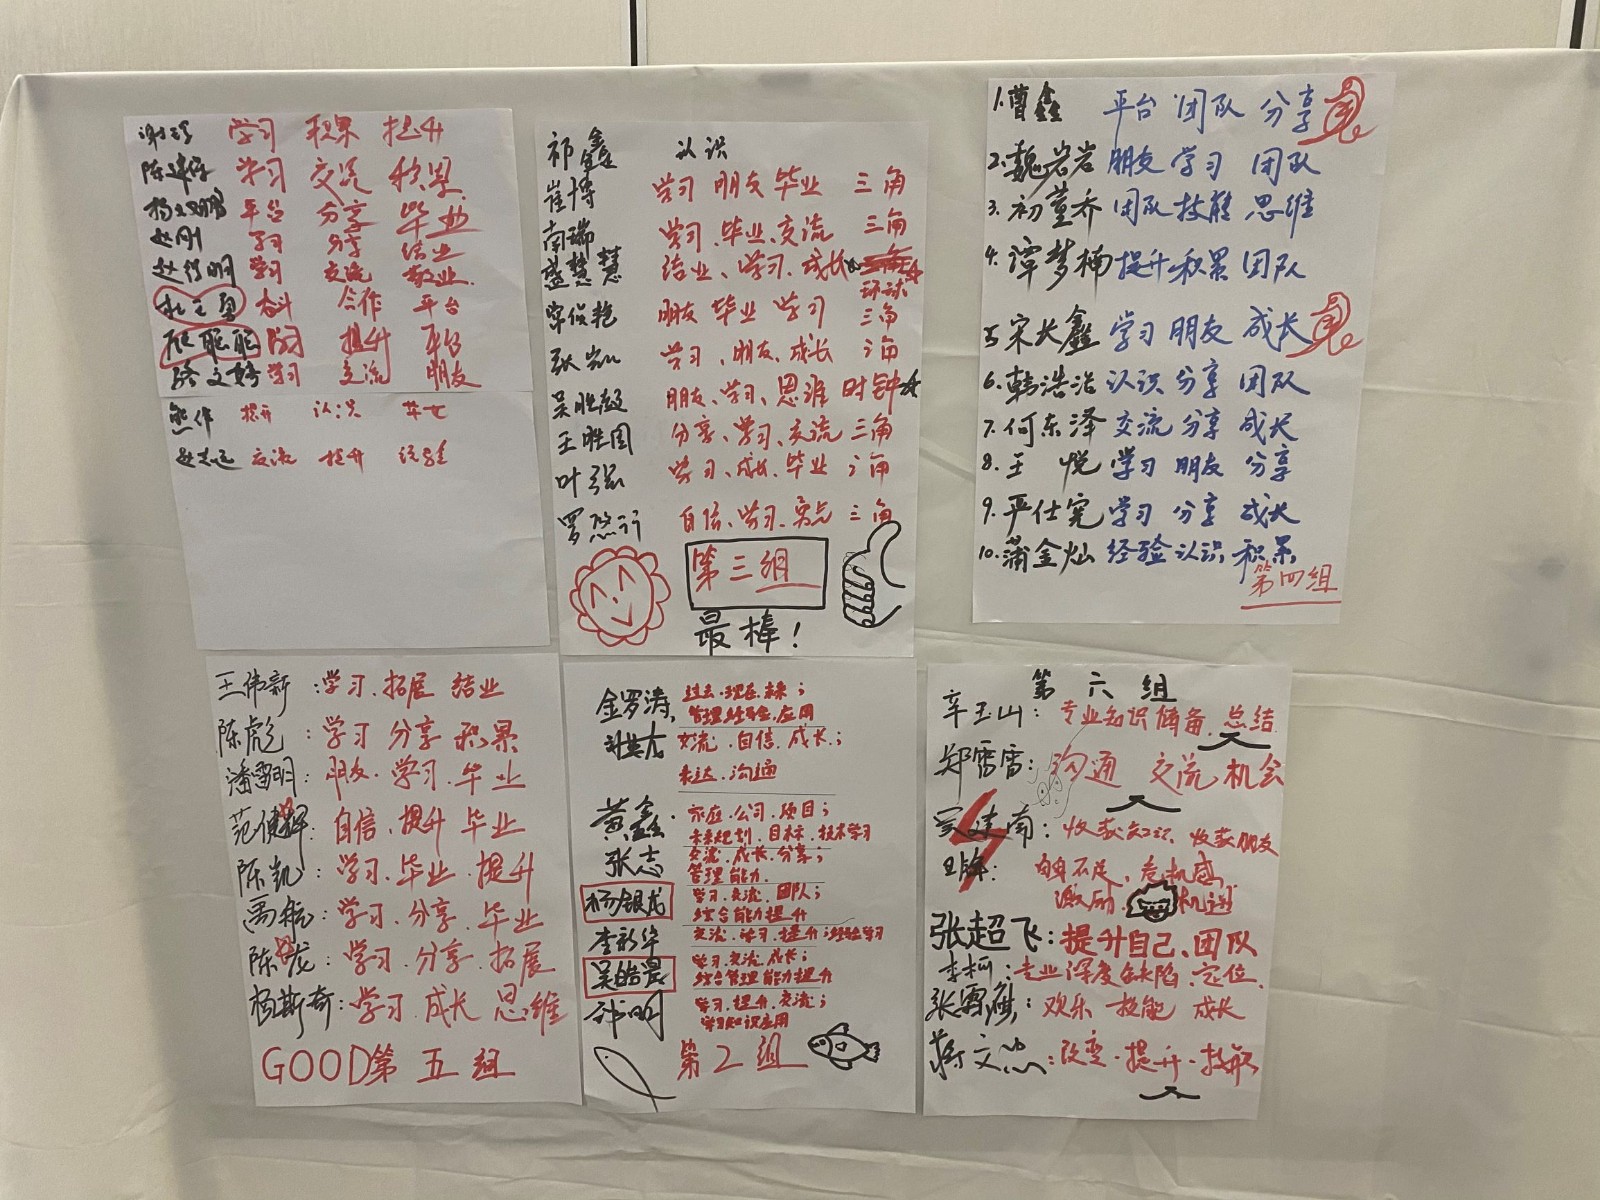 学习 积累 提升
学习 交流 积累
平台 分享 毕业
赵刚 学习 分享 结业
学习 交流 敬业
奋斗 合作 平台
提升
学习 交流 朋友
熊伟 提升 认识
交流 提升 经验
祁鑫 认识
崔博 学习 朋友 毕业 三角
南瑞 学习、毕业、交流 三角
盛慧慧 结业、学习、成长
环球
朋友 毕业 学习 三角
张凯 学习、朋友、成长 三角
朋友、学习、思维 时钟
王胜国 分享、学习、交流 三角
叶强 学习、成长、毕业 三角
自信、学习 三角
第三组
最棒!
1.曹鑫 平台 团队 分享
2.魏岩岩 朋友 学习 团队
3.初董乔 团队 技能 思维
4.谭梦楠 提升 积累 团队
5 宋长鑫 学习 朋友 成长
6.韩浩浩 认识 分享 团队
7.何东泽 交流 分享 成长
8.王 悦 学习 朋友 分享
9.严仕宪 学习 分享 成长
10.蒲金灿 经验 认识 积累
第四组
王伟新:学习.拓展 结业
陈彪:学习 分享 积累
潘雪明:朋友.学习.毕业
自信.提升 毕业
陈凯:学习.毕业.提升
禹航:学习.分享.毕业
陈龙:学习.分享.拓展
杨斯奇:学习.成长 思维
GOOD第五组
金罗涛, 过去.现在.未来;
管理经验.应用
交流.自信.成长;
表达.沟通
黄鑫. 家庭.公司.项目;
未来规划.目标.技术学习
张志 交流.成长.分享;
管理能力.
杨银龙 学习.交流.团队;
综合能力提升
李新华 交流.学习.提升;经验学习
吴皓晨 学习.交流.成长;
综合管理能力提升
学习.提升.交流;
学习知识应用
第2组
第六组
辛玉山:专业知识储备.总结
郑雷雷:沟通 交流 机会
吴建南:收获知识、收获朋友
自身不足、危机感
激励. 机遇
张超飞:提升自己、团队
李柯:专业深度缺陷.定位.
欢乐 技能 成长
蒋文浩:改变.提升.技能